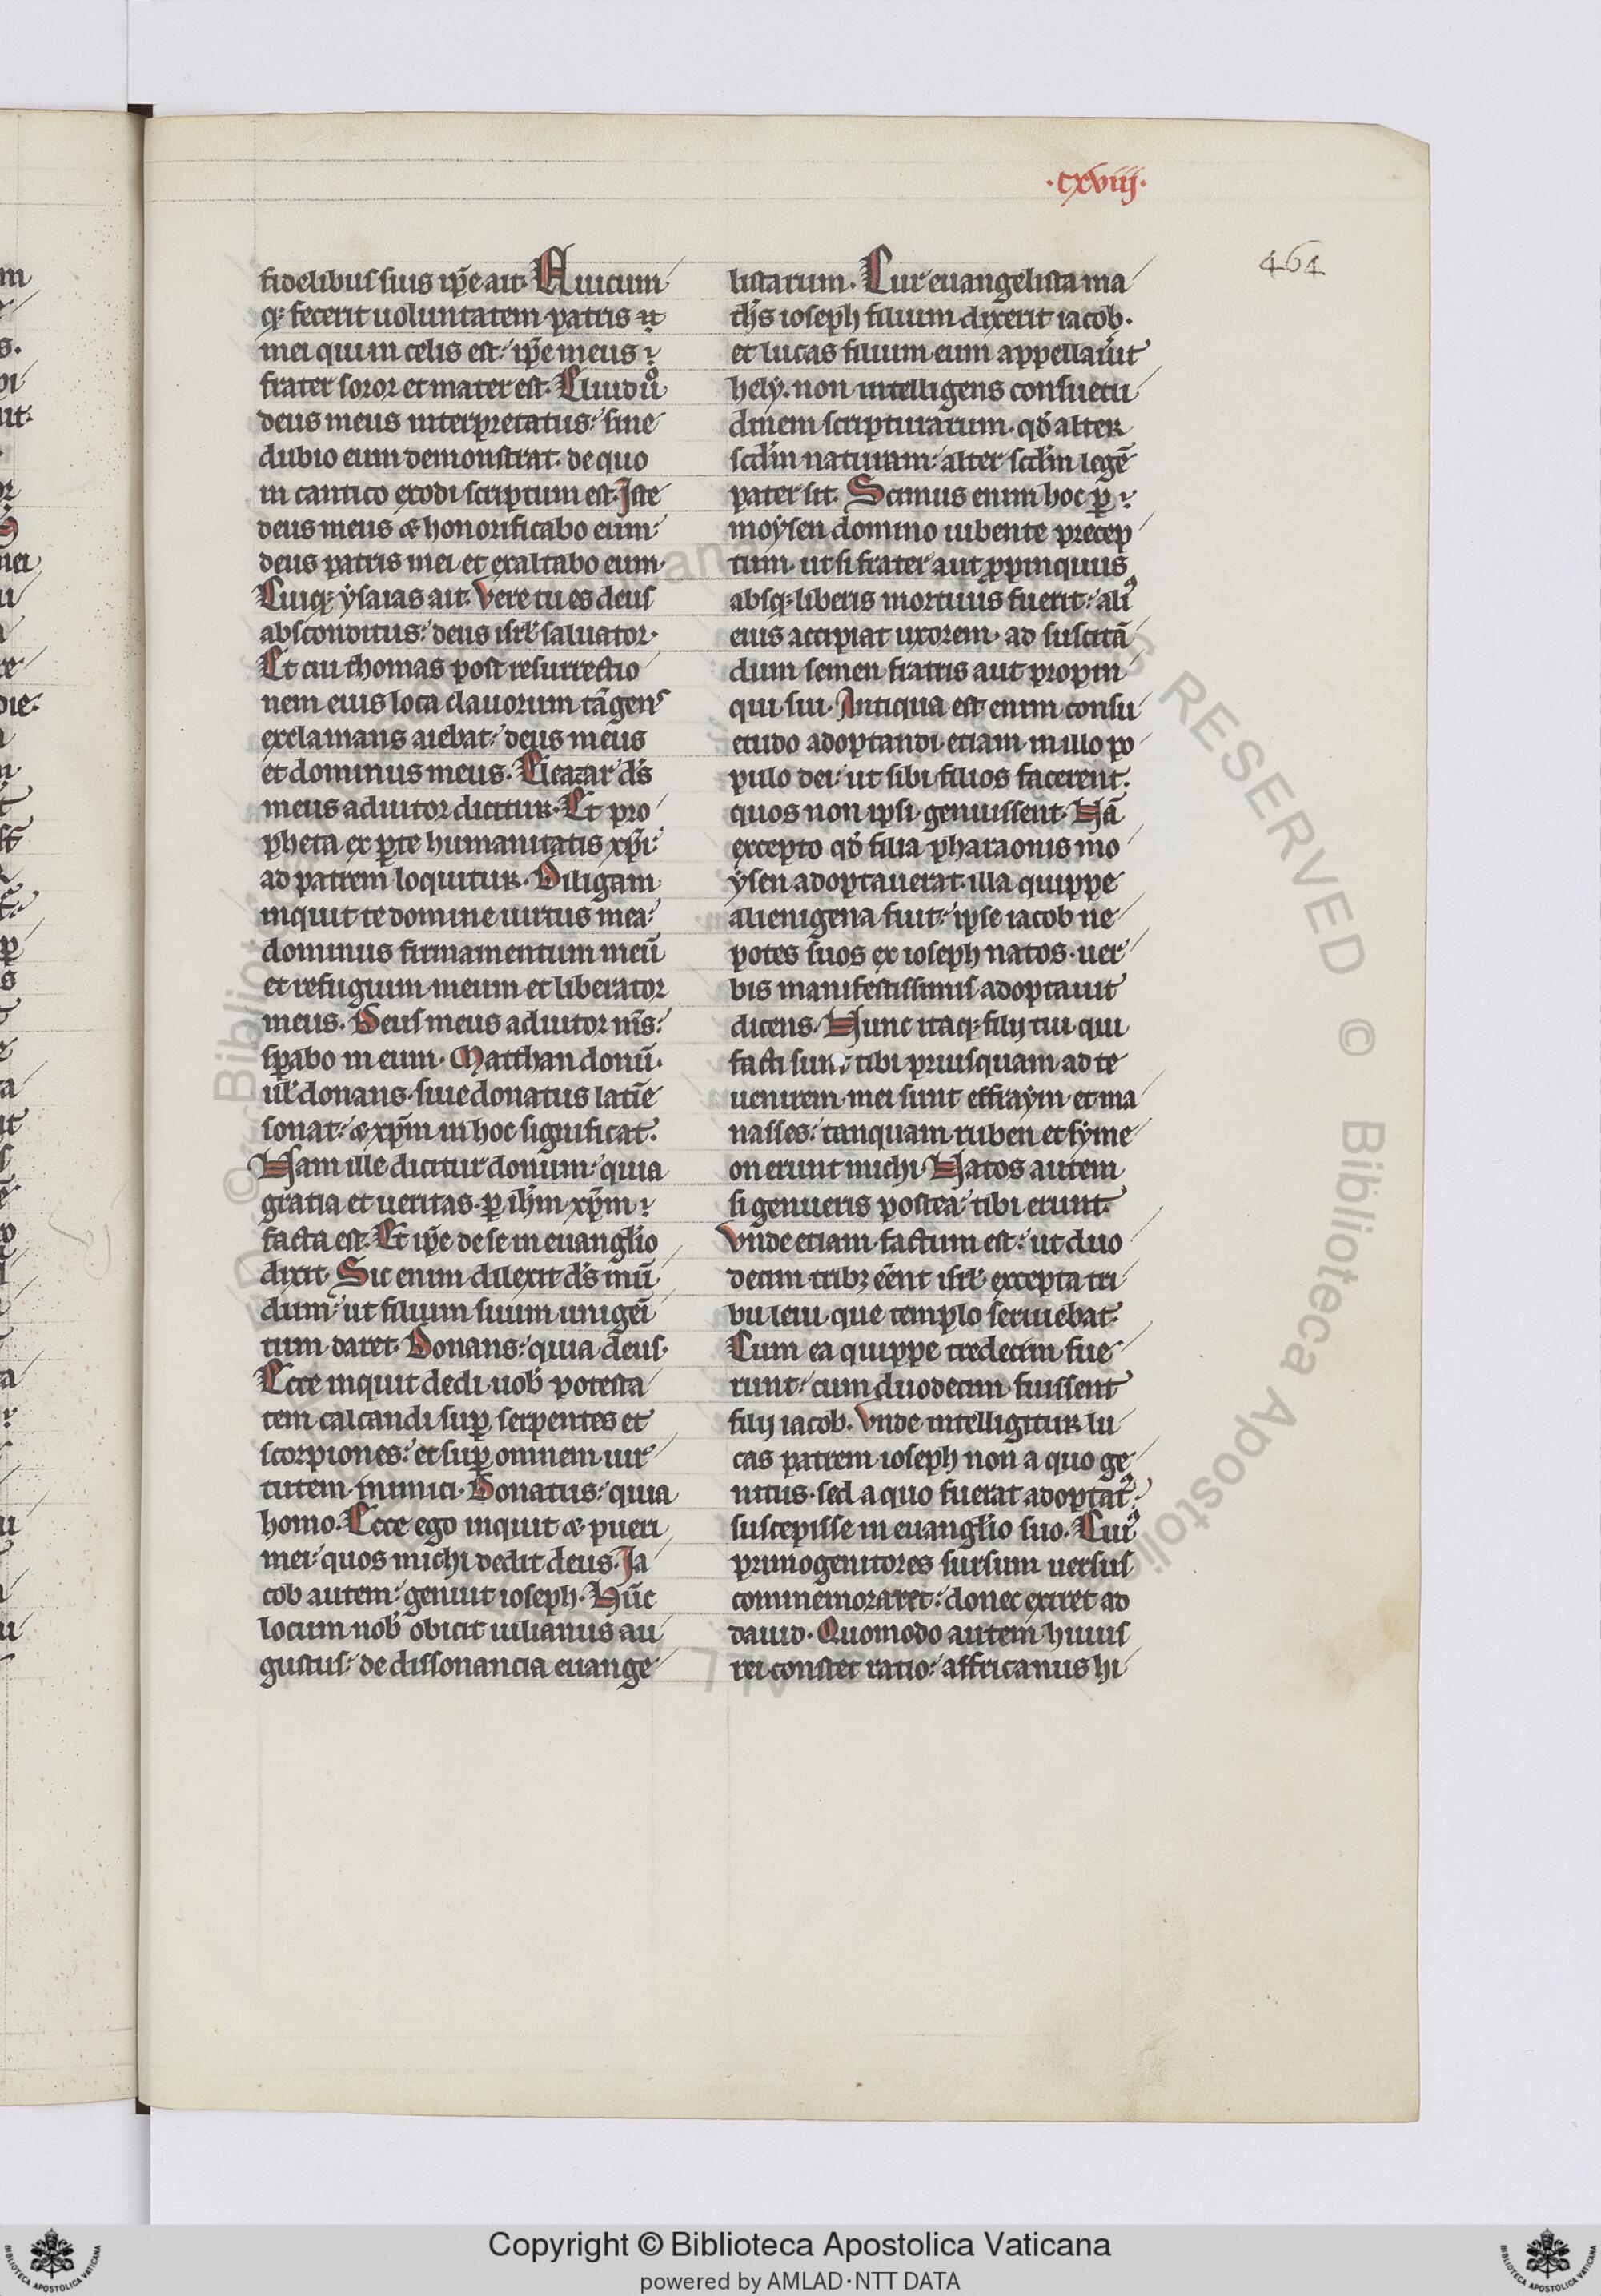 ·cxviij·
464
fidelibus suis ip̄e ait. Quicum
q; fecerit uoluntatem patris
mei qui in celis est: ip̄e meus
frater soror et mater est. Eliud ŭ
deus meus interpretatus: siue
dubio eum demonstrat. de quo
in cantico exodi scriptum est. Iste
deus meus & honorificabo eum:
deus patris mei et exaltabo eum.
Cuiq; ysaias ait. Vere tu es deus
absconditus: deus isrl̄ saluator.
Et cui thomas post resurrectio
nem eius loca clauorum tāgens
exclamans aiebat: deus meus
et dominus meus. Eleazar ds̄
meus adiutor dicitur. Et pro
pheta ex ꝑte humanitatis xp̄i
ad patrem loquitur. Diligam
inquit te domine uirtus mea:
dominus firmamentum meū
et refugium meum et liberator
meus. Deus meus adiutor ms̄:
sꝑabo in eum. Matthan donū.
ul̄ donans. siue donatus latīe
sonat: & xp̄m in hoc significat.
Nam ille dicitur donum: quia
gratia et ueritas. ꝑ ih̄m xp̄m
facta est. Et ip̄e de se in euangl̄io
dixit. Sic enim dilexit ds̄ mū
dum: ut filium suum unigeī
tum daret. Donans: quia deus.
Ecce inquit dedi uob̄ potesta
tem calcandi suꝑ serpentes et
scorpiones: et suꝑ omnem uir
tutem inimici. Donatus: quia
homo. Ecce ego inquit & pueri
mei: quos michi dedit deus. Ja
cob autem: genuit ioseph. Hūc
locum nob̄ obicit iulianus au
gustus: de dissonancia euange
listarum. Cur euangelista ma
th̄s ioseph filium dixerit iacob.
et lucas filium eum appellarit
hely. non intelligens consuetu
dinem scripturarum. qđ alter
scđm naturam: alter scđm legē
pater sit. Scimus enim hoc ꝑ
moysen domino iubente precep
tum. ut si frater aut ꝓpinquus
absq; liberis mortuus fuerit: ali9
eius accipiat uxorem. ad suscitā
dum semen fratris aut propin
qui sui. Antiqua est enim consu
etudo adoptandi. etiam in illo po
pulo dei: ut sibi filios facerent.
quos non ipsi genuissent. Nā
excepto qđ filia pharaonis mo
ysen adoptauerat. illa quippe
alienigena fuit: ipse iacob ne
potes suos ex ioseph natos. uer
bis manifestissimis adoptauit
dicens. Nunc itaq; filij tui. qui
facti sunt tibi priusquam ad te
uenirem. mei sunt effraym et ma
nasses: tanquam ruben et syme
on erunt michi. Natos autem
si genueris postea: tibi erunt.
Vnde etiam factum est: ut duo
decim tribꝫ eēnt isrl̄. excepta tri
bu leui. que templo seruiebat.
Cum ea quippe tredecim fue
runt: cum duodecim fuissent
filij iacob. Vnde intelligitur lu
cas patrem ioseph non a quo ge
nitus. sed a quo fuerat adoptat9:
suscepisse in euangl̄io suo. Cui9
primogenitores sursum uersus
commemoraret: donec exiret ad
dauid. Quomodo autem huius
rei constet ratio: affricanus hi
Copyright © Biblioteca Apostolica Vaticana
powered by AMLAD·NTT DATA